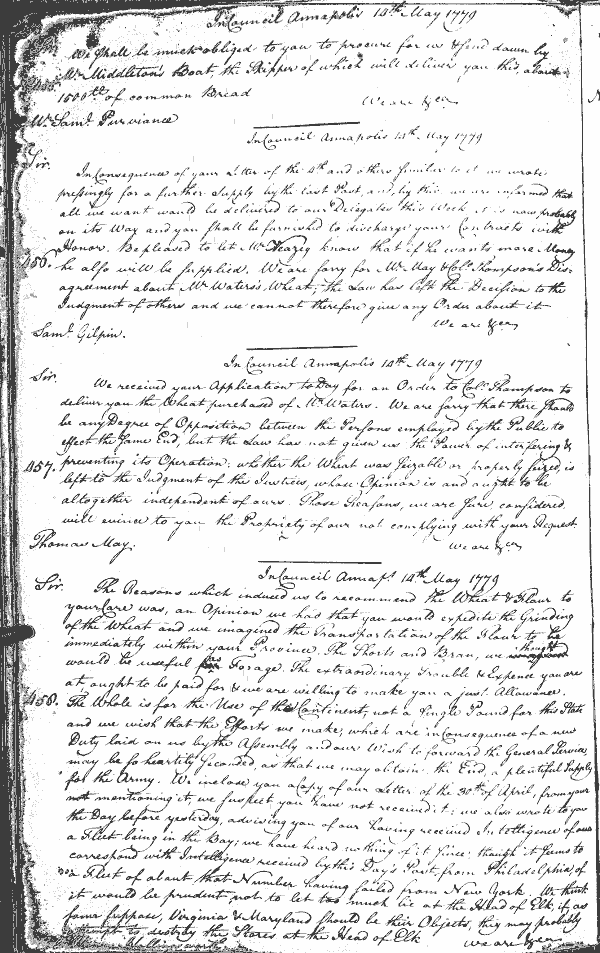 In Council Annapolis 14th May 1779
We shall be much obliged to you to procure for us & send down by
Mr Middleton's Boat, the Skipper of which will deliver you this, about
455.
1500 lb of common Bread
We are &ca
Mr Saml Purviance
In Council Annapolis 14th May 1779
Sir.
In Consequence of your Letter of the 4th and others similar to it we wrote
pressingly for a further Supply by the last Post, and, by this we are informed that
all we want would be delivered to our Delegates this Week, it is now probably
on its Way and you shall be furnished to discharge your Contracts with
Honor. Be pleased to let Mr Veazey know that if he wants more Money
456.
he also will be supplied. We are sorry for Mr May & Colo Thompson's Dis:
agreement about Mr Waters's Wheat; the Law has left the Decision to the
Judgment of others and we cannot therefore give any Order about it
We are &ca
Saml Gilpin.
In Council Annapolis 14th May 1779
Sir.
We received your Application to Day for an Order to Colo Thompson to
deliver you the Wheat purchased of Mr Waters. We are sorry that there should
be any Degree of Opposition between the Persons employed by the Public, to
effect the same End, but the Law has not given us the Power of interfering &
457.
preventing its Operation; whether the Wheat was seizable or properly seized, is
left to the Judgment of the Justices, whose Opinion is and ought to be
altogether independent of ours. Those Reasons, we are sure, considered,
will evince to you the Propriety of our not complying with your Request
We are &ca
Thomas May.
In Council Annaps 14th May 1779
Sir.
The Reasons which induced us to recommend the Wheat & Flour to
your Care was, an Opinion we had that you would expedite the Grinding
of the Wheat and we imagined the Transportation of the Flour to be
immediately within your Province. The Shorts and Bran, we thought
would be useful as Forage. The extraordinary Trouble & Expence you are
at ought to be paid for & we are willing to make you a just Allowance.
458.
The Whole is for the Use of the Continent, not a single Pound for this State
and we wish that the Efforts we make, which are in Consequence of a new
Duty laid on us by the Assembly and our Wish to forward the General Services
may be so heartily seconded, as that we may obtain the End, a plentiful Supply
for the Army. We inclose you a Copy of our Letter of the 30th of April, from your
not mentioning it, we suspect you have not received it; we also wrote to you
the Day before yesterday, advising you of our having received Intelligence of
a Fleet being in the Bay; we have heard nothing of it since; though it seems to
correspond with Intelligence received by this Day's Post from Philadelphia, of
a Fleet of about that Number having sailed from New York. We think
it would be prudent not to let too much lie at the Head of Elk, if, as
some suppose, Virginia & Maryland should be their Objects, they may probably
attempt to destroy the Stores at the Head of Elk
We are &ca
Hollingsworth